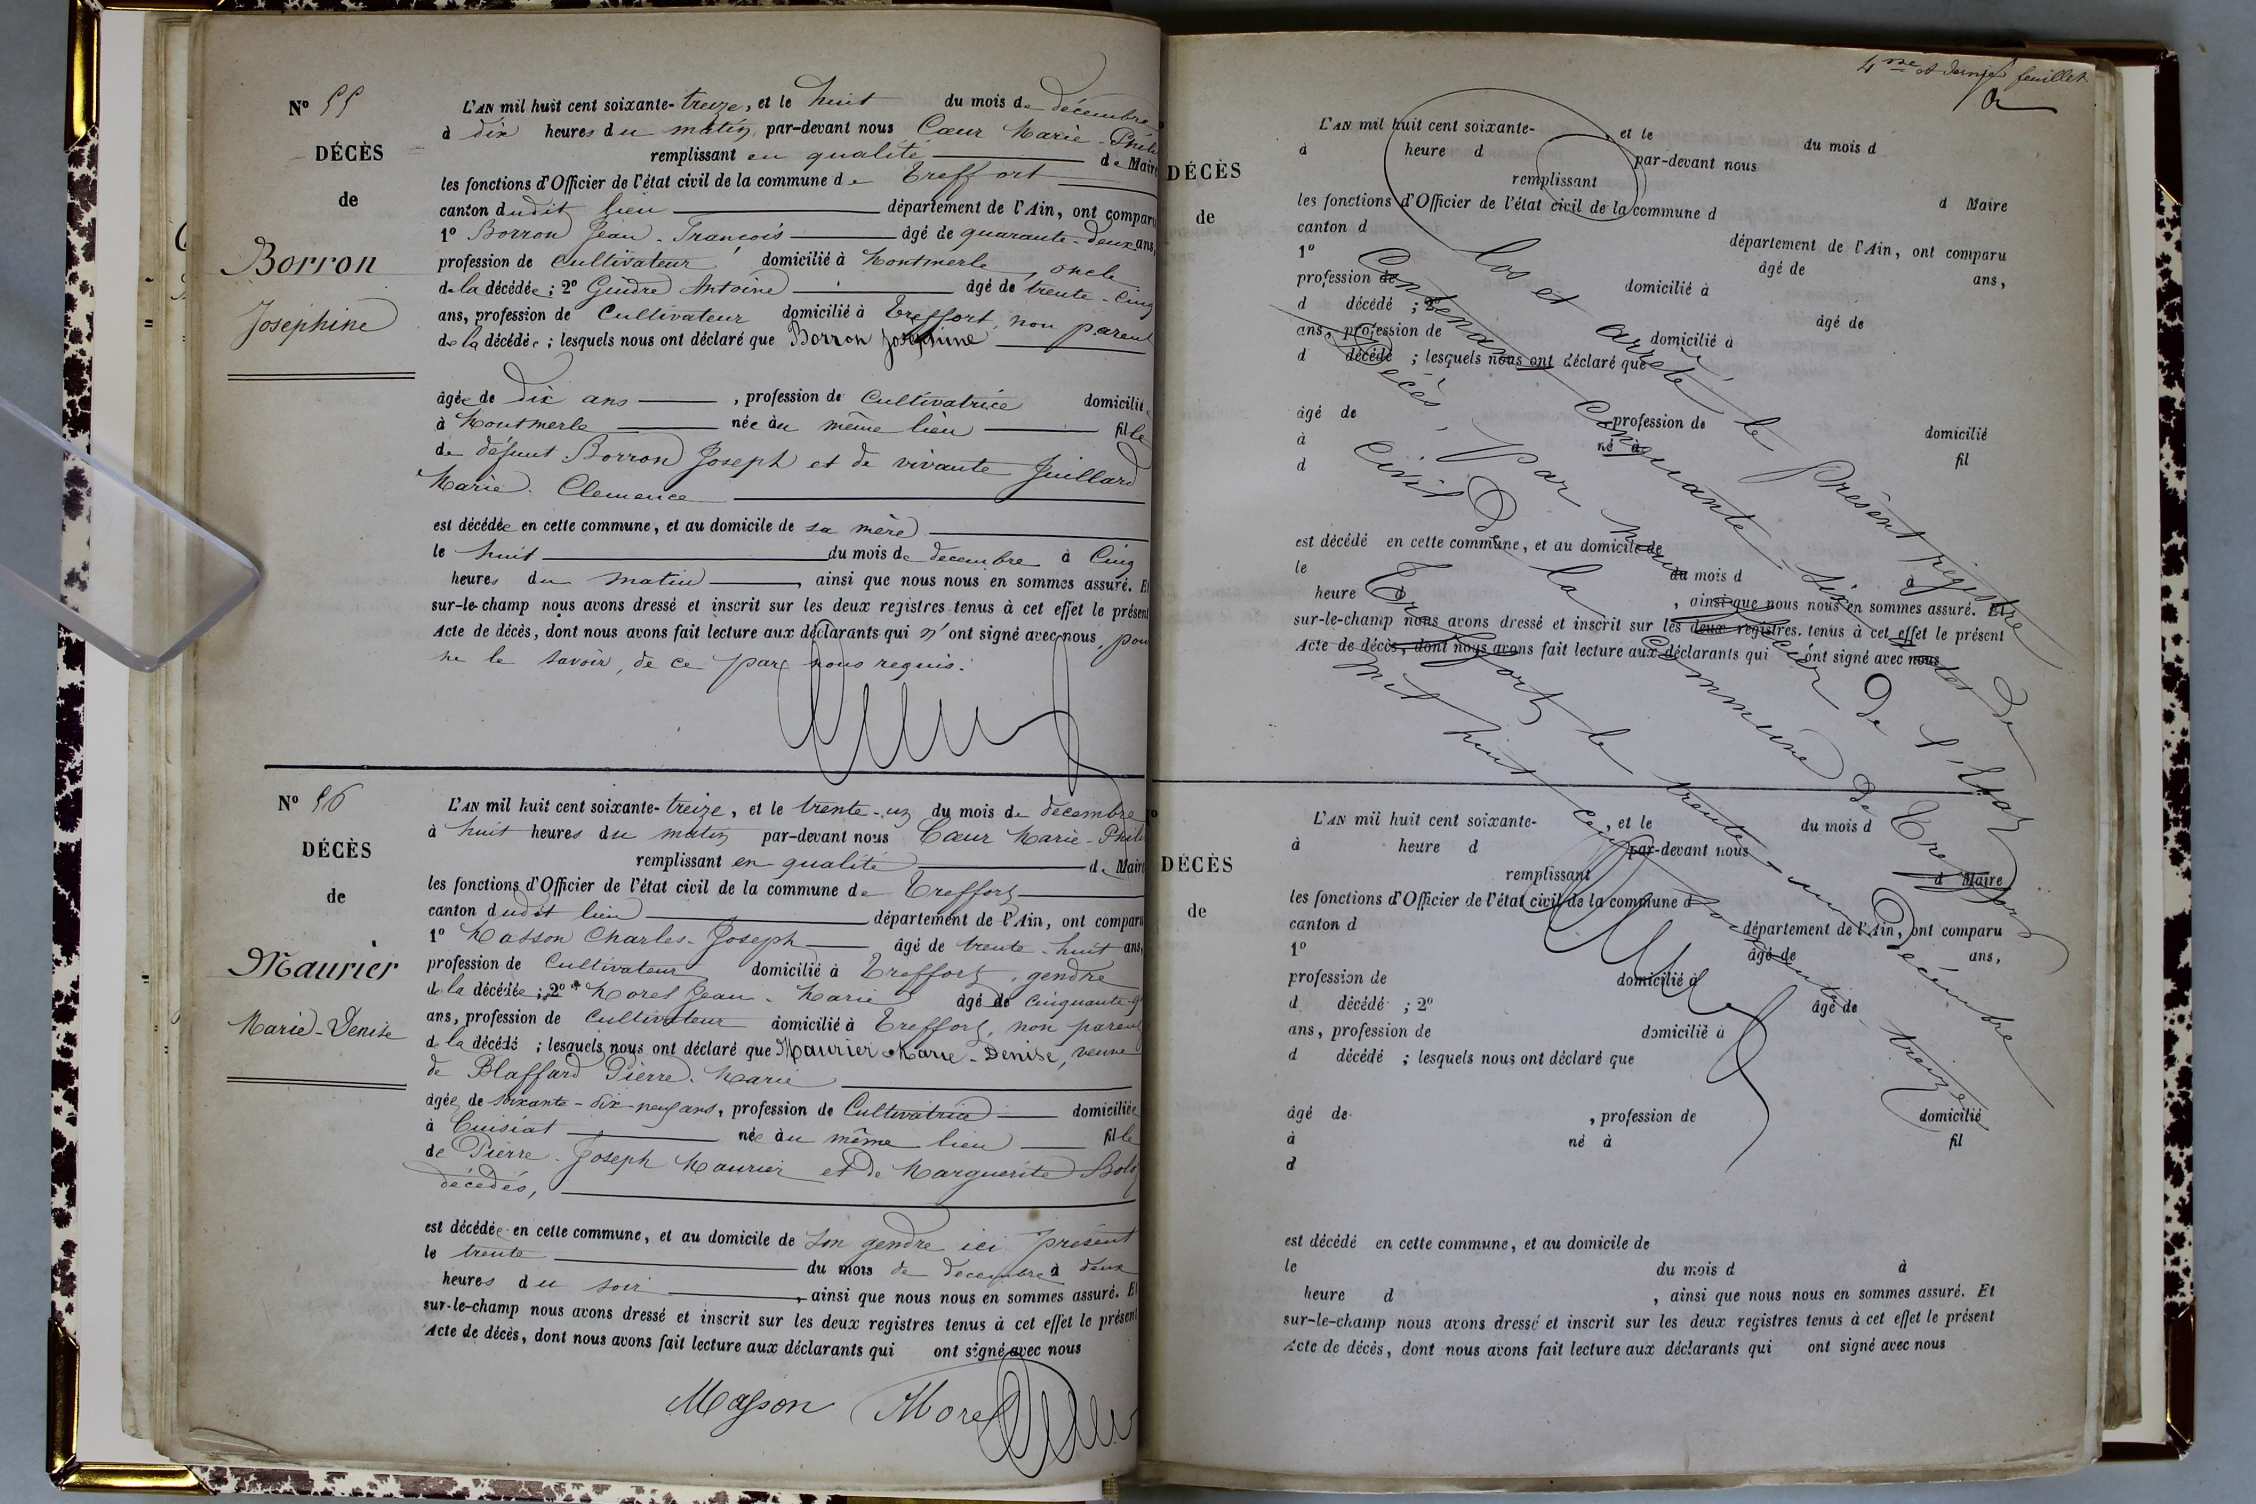 N° 55
DÉCÈS
de
Borron
Josephine
L'AN mil huit cent soixante-treize, et le huit du mois de décembre
à dix heures du matin, par-devant nous Cœur Marie-Phili
remplissant en qualité de Maire
les fonctions d'Officier de l'état civil de la commune de Treffort
canton dudit lieu département de l'Ain, ont comparu
1° Borron Jean-François âgé de quarante-deux ans,
profession de cultivateur domicilié à Montmerle, oncle
de la décédée; 2° Guidre Antoine âgé de trente-cinq
ans, profession de Cultivateur domicilié à Treffort, non parent
de la décédée; lesquels nous ont déclaré que Borron Josephine
âgée de dix ans, profession de Cultivatrice domiciliée
à Montmerle née au même lieu fille
de défunt Borron Joseph et de vivante Juillard
Marie-Clemence
est décédée en cette commune, et au domicile de sa mère
le huit du mois de decembre à Cinq
heures du matin, ainsi que nous nous en sommes assuré. Et
sur-le-champ nous avons dressé et inscrit sur les deux registres tenus à cet effet le présent
Acte de décès, dont nous avons fait lecture aux déclarants qui n'ont signé avec nous, pour
ne le savoir, de ce par nous requis.
N° 56
DÉCÈS
de
Maurier
Marie-Denise
L'AN mil huit cent soixante-treize, et le trente-un du mois de decembre
à huit heures du matin par-devant nous Cœur Marie-Phili
remplissant en qualité de Maire
les fonctions d'Officier de l'état civil de la commune de Treffort
canton dudit lieu département de l'Ain, ont comparu
1° Masson Charles-Joseph âgé de trente-huit ans,
profession de Cultivateur domicilié à Treffort, gendre
de la décédée; 2° Morel Jean-Marie âgé de cinquante-
ans, profession de Cultivateur domicilié à Treffort, non parent
de la décédé; lesquels nous ont déclaré que Maurier Marie-Denise, veuve
de Blaffard Pierre-Marie
âgée de soixante-dix-neuf ans, profession de Cultivatrice domiciliée
à Cuisiat née au même lieu fille
de Pierre-Joseph Maurier et de Marguerite
décédés,
est décédée en cette commune, et au domicile de son gendre ici présent
le trente du mois de decembre à deux
heures du soir, ainsi que nous nous en sommes assuré. Et
sur-le-champ nous avons dressé et inscrit sur les deux registres tenus à cet effet le présent
Acte de décès, dont nous avons fait lecture aux déclarants qui ont signé avec nous
Masson Morel
4me et dernier feuillet
DÉCÈS
de
L'AN mil huit cent soixante- , et le du mois d
à heure d par-devant nous
remplissant d Maire
les fonctions d'Officier de l'état civil de la commune d
canton d département de l'Ain, ont comparu
1° âgé de ans,
profession de domicilié à
d décédé ; 2° âgé de
ans, profession de domicilié à
d décédé ; lesquels nous ont déclaré que
âgé de , profession de domicilié
à né à fil
d
est décédé en cette commune, et au domicile de
le du mois d à
heure d , ainsi que nous nous en sommes assuré. Et
sur-le-champ nous avons dressé et inscrit sur les deux registres tenus à cet effet le présent
Acte de décès, dont nous avons fait lecture aux déclarants qui ont signé avec nous
Clos et arrêté le présent registre
Contenant Cinquante-six actes de
Décès, par nous officier de l'état
civil de la commune de Treffort
Treffort le trente-un Décembre
mil huit cent soixante-treize
DÉCÈS
de
L'AN mil huit cent soixante- , et le du mois d
à heure d par-devant nous
remplissant d Maire
les fonctions d'Officier de l'état civil de la commune d
canton d département de l'Ain, ont comparu
1° âgé de ans,
profession de domicilié à
d décédé ; 2° âgé de
ans, profession de domicilié à
d décédé ; lesquels nous ont déclaré que
âgé de , profession de domicilié
à né à fil
d
est décédé en cette commune, et au domicile de
le du mois d à
heure d , ainsi que nous nous en sommes assuré. Et
sur-le-champ nous avons dressé et inscrit sur les deux registres tenus à cet effet le présent
Acte de décès, dont nous avons fait lecture aux déclarants qui ont signé avec nous